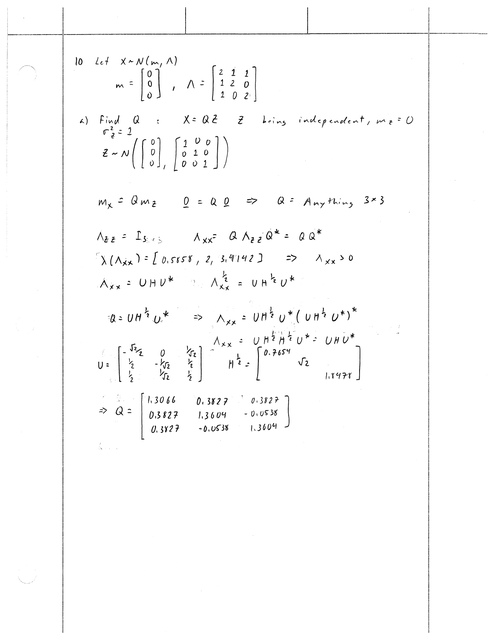 10 Let X ~ N(m, Λ)
m = [0 0 0], Λ = [2 1 1; 1 2 0; 1 0 2]
a) Find Q : X = QZ Z being independent, m_z = 0
σ_z² = 1
Z ~ N([0 0 0], [1 0 0; 0 1 0; 0 0 1])
m_x = Q m_z 0 = Q 0 ⇒ Q = Anything 3×3
Λ_zz = I_3×3 Λ_xx = Q Λ_zz Q* = QQ*
λ(Λ_xx) = [0.5858, 2, 3.4142] ⇒ Λ_xx > 0
Λ_xx = UHU* Λ_xx^½ = UH^½U*
Q = UH^½U* ⇒ Λ_xx = UH^½U*(UH^½U*)*
Λ_xx = UH^½H^½U* = UHU*
U = [-√2/2 0 1/√2; ½ -1/√2 ½; ½ 1/√2 ½] H^½ = [0.7654 √2 1.8478]
⇒ Q = [1.3066 0.3827 0.3827; 0.3827 1.3604 -0.0538; 0.3827 -0.0538 1.3604]